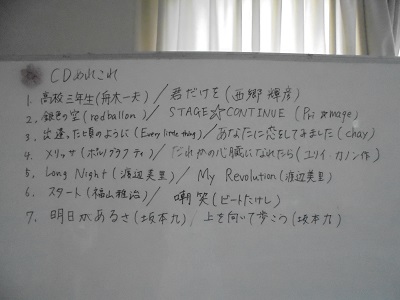 CDあれこれ
1. 高校三年生(舟木一夫)/君だけを(西郷輝彦)
2. 銀色の空(redballon)/STAGE☆CONTINUE(Pri☆mage)
3. 出逢った頃のように(Every little thing)/あなたに恋をしてみました(chay)
4. メリッサ(ポルノグラフィティ)/だれかの心臓になれたら(ユリイ・カノン作)
5. Long Night(渡辺美里)/My Revolution(渡辺美里)
6. スタート(福山雅治)/嘲笑(ビートたけし)
7. 明日があるさ(坂本九)/上を向いて歩こう(坂本九)